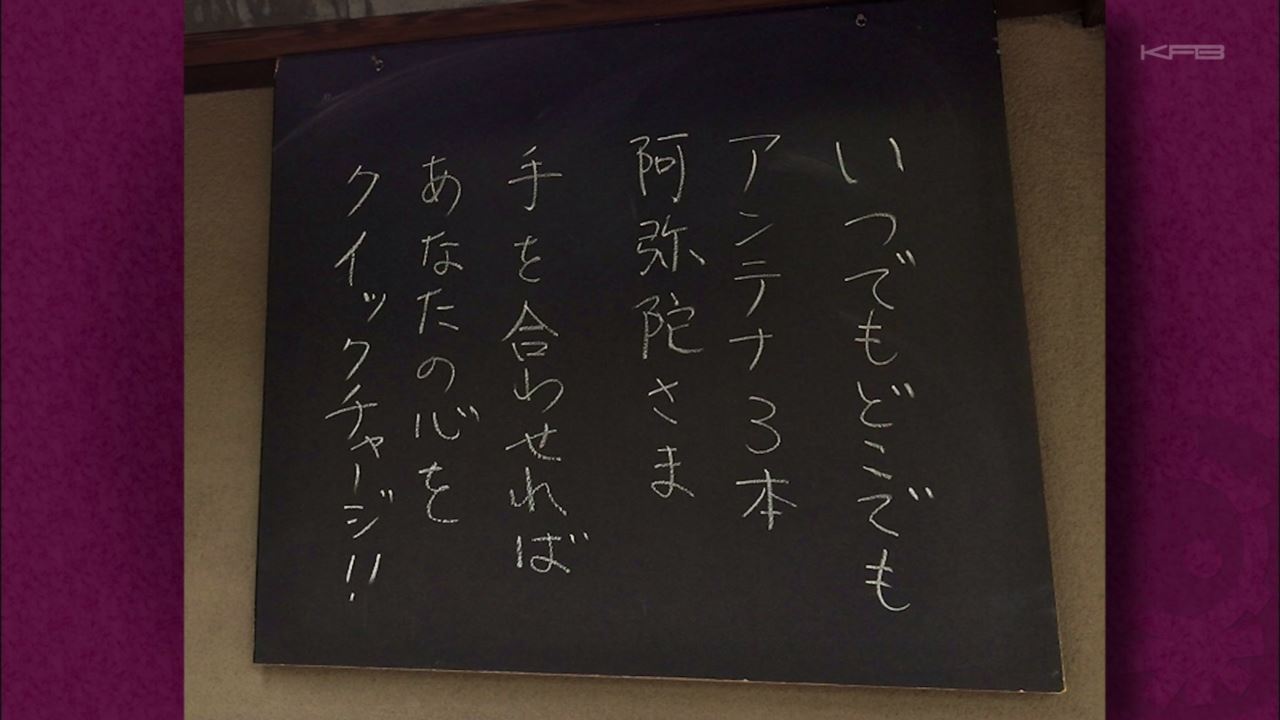 いつでもどこでも
アンテナ3本
阿弥陀さま
手を合わせれば
あなたの心を
クイックチャージ!!
KFB